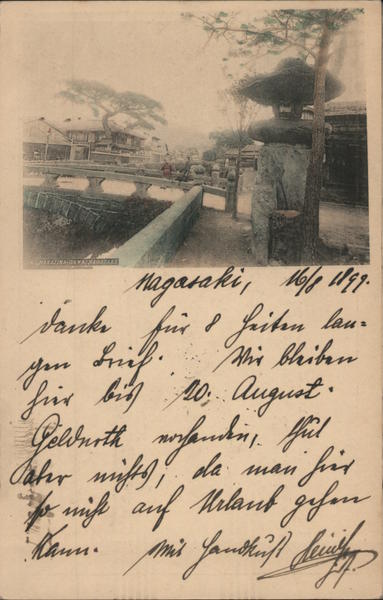 NAKAZIMA-GAWA, NAGASAKI
Nagasaki, 16/8 1899.
Danke für 8 Seiten lan-
gen Brief. Wir bleiben
hier bis 20. August.
Geldnoth vorhanden, thut
aber nichts, da man hier
so nicht auf Urlaub gehen
kann. Mit Handkuß